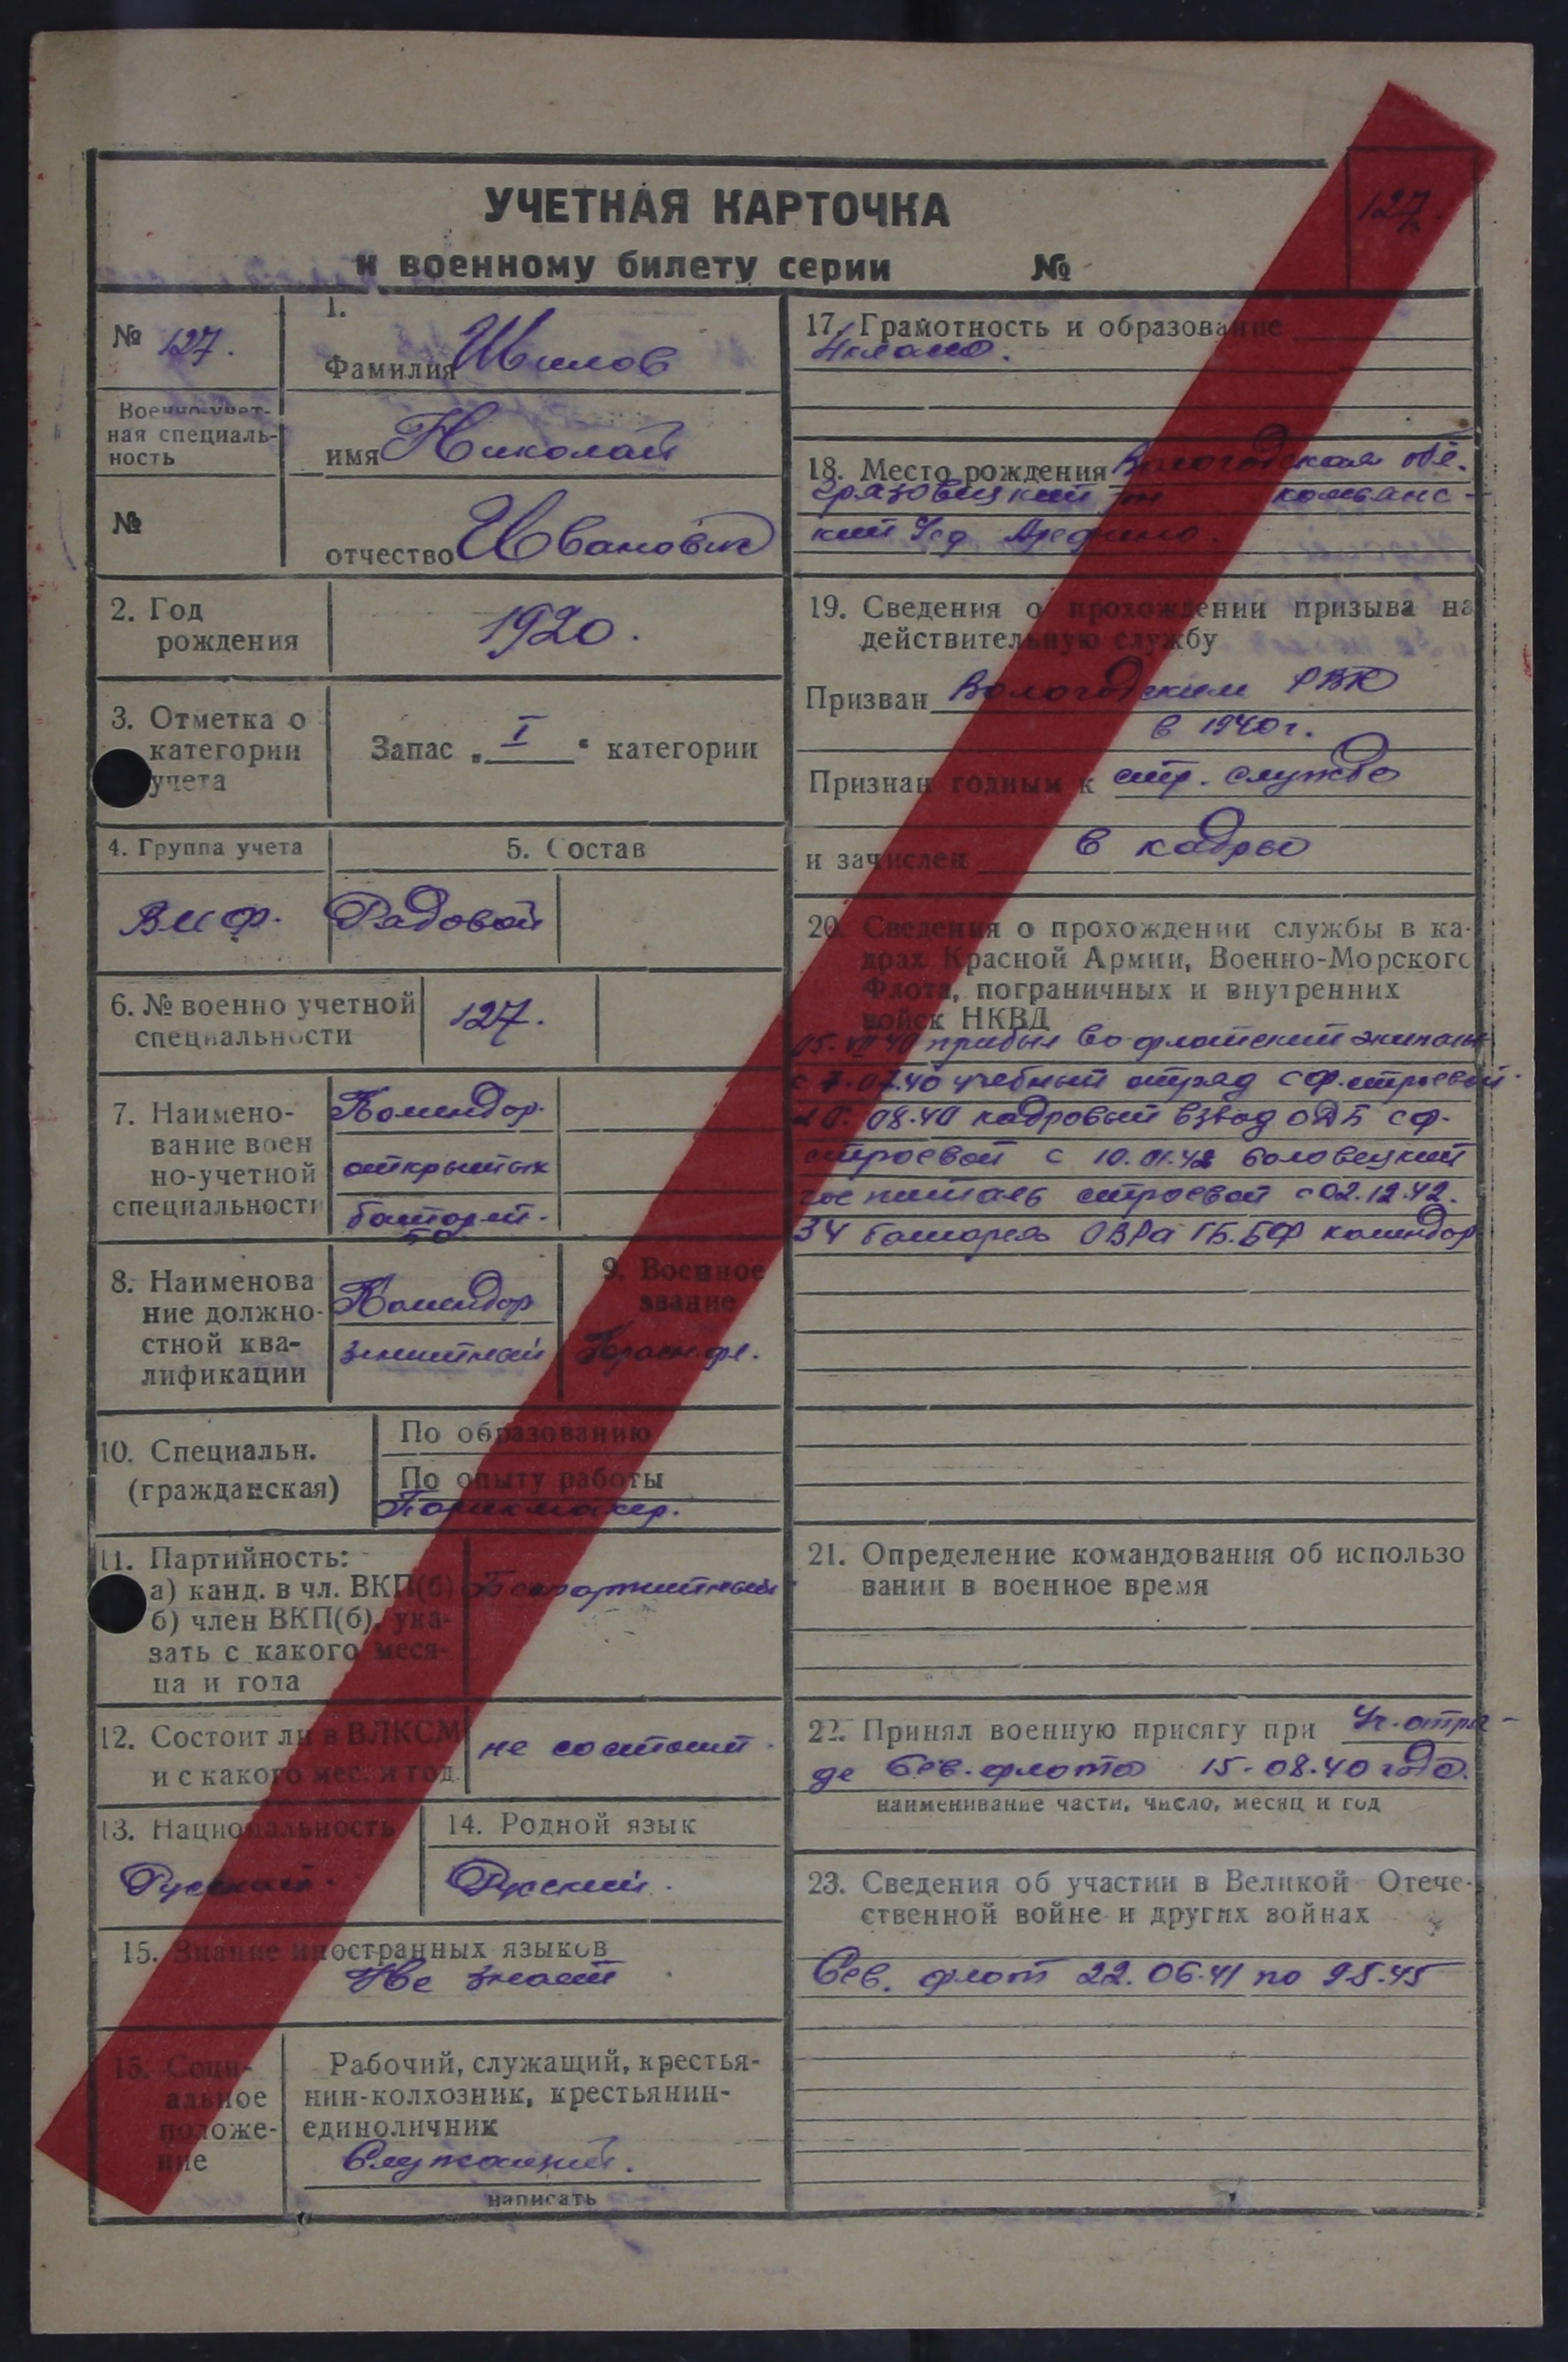 УЧЕТНАЯ КАРТОЧКА
к военному билету серии №
127.
№ 127.
1.
Фамилия Шилов
Военно-учет-
ная специаль-
ность
имя Николай
№
отчество Иванович
2. Год
рождения
1920.
3. Отметка о
категории
учета
Запас „ I " категории
4. Группа учета
5. Состав
ВМФ.
Рядовой
6. № военно учетной
специальности
127.
7. Наимено-
вание воен
но-учетной
специальности
Комендор.
открытых
батарей.
8. Наименова
ние должно-
стной ква-
лификации
Комендор
зенитный
9. Военное
звание
Краснофл.
10. Специальн.
(гражданская)
По образованию
По опыту работы
Парикмахер.
11. Партийность:
а) канд. в чл. ВКП(б)
б) член ВКП(б), ука-
зать с какого меся-
ца и года
Беспартийный
12. Состоит ли в ВЛКСМ
и с какого мес. и год.
не состоит.
13. Национальность
Русский.
14. Родной язык
Русский.
15. Знание иностранных языков
Не знает
15. Соци-
альное
положе-
ние
Рабочий, служащий, крестья-
нин-колхозник, крестьянин-
единоличник
Служащий.
написать
17. Грамотность и образование
4 класса.
18. Место рождения Вологодская об.
Грязовецкий рн
кий
19. Сведения о прохождении призыва на
действительную службу
Призван Вологодским РВК
в 1940 г.
Признан годным к стр. службе
и зачислен в кадры
20. Сведения о прохождении службы в ка-
драх Красной Армии, Военно-Морского
Флота, пограничных и внутренних
войск НКВД
05. VII 40 прибыл во флотский экипаж
с 7.07.40 учебный отряд СФ. строевой.
08.40 кадровый взвод СФ.
строевой с 10.01.42 Соловецкий
госпиталь строевой с 02.12.42.
34 батарея ОВРа ГБ. БФ комендор
21. Определение командования об использо
вании в военное время
22. Принял военную присягу при Уч. отря-
де Сев. флота 15-08.40 года.
наименивание части, число, месяц и год
23. Сведения об участии в Великой Отече-
ственной войне и других войнах
Сев. флот 22.06.41 по 9.5.45